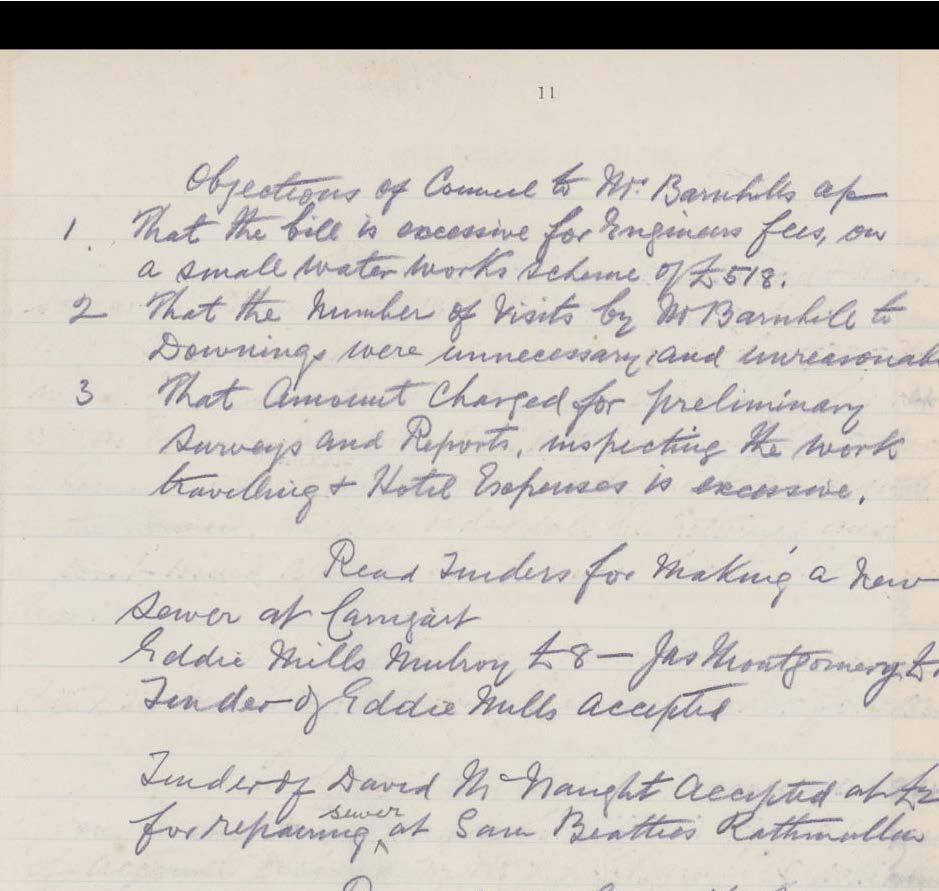 11
Objections of Council to Mr. Barnhills ap
1. That the bill is excessive for Engineers fees, on
a small water works scheme of £518.
2 That the Number of Visits by Mr Barnhill to
Downings were unnecessary and unreasonab
3 That Amount Charged for preliminary
Surveys and Reports, inspecting the work
travelling & Hotel Expenses is excessive.
Read Tenders for Making a New
Sewer at Carrigart
Eddie Mills Mulroy £8 — Jas Montgomery £
Tender of Eddie Mills Accepted
Tender of David McNaught Accepted at £2
for repairing sewer at Sam Beatties Rathmullan